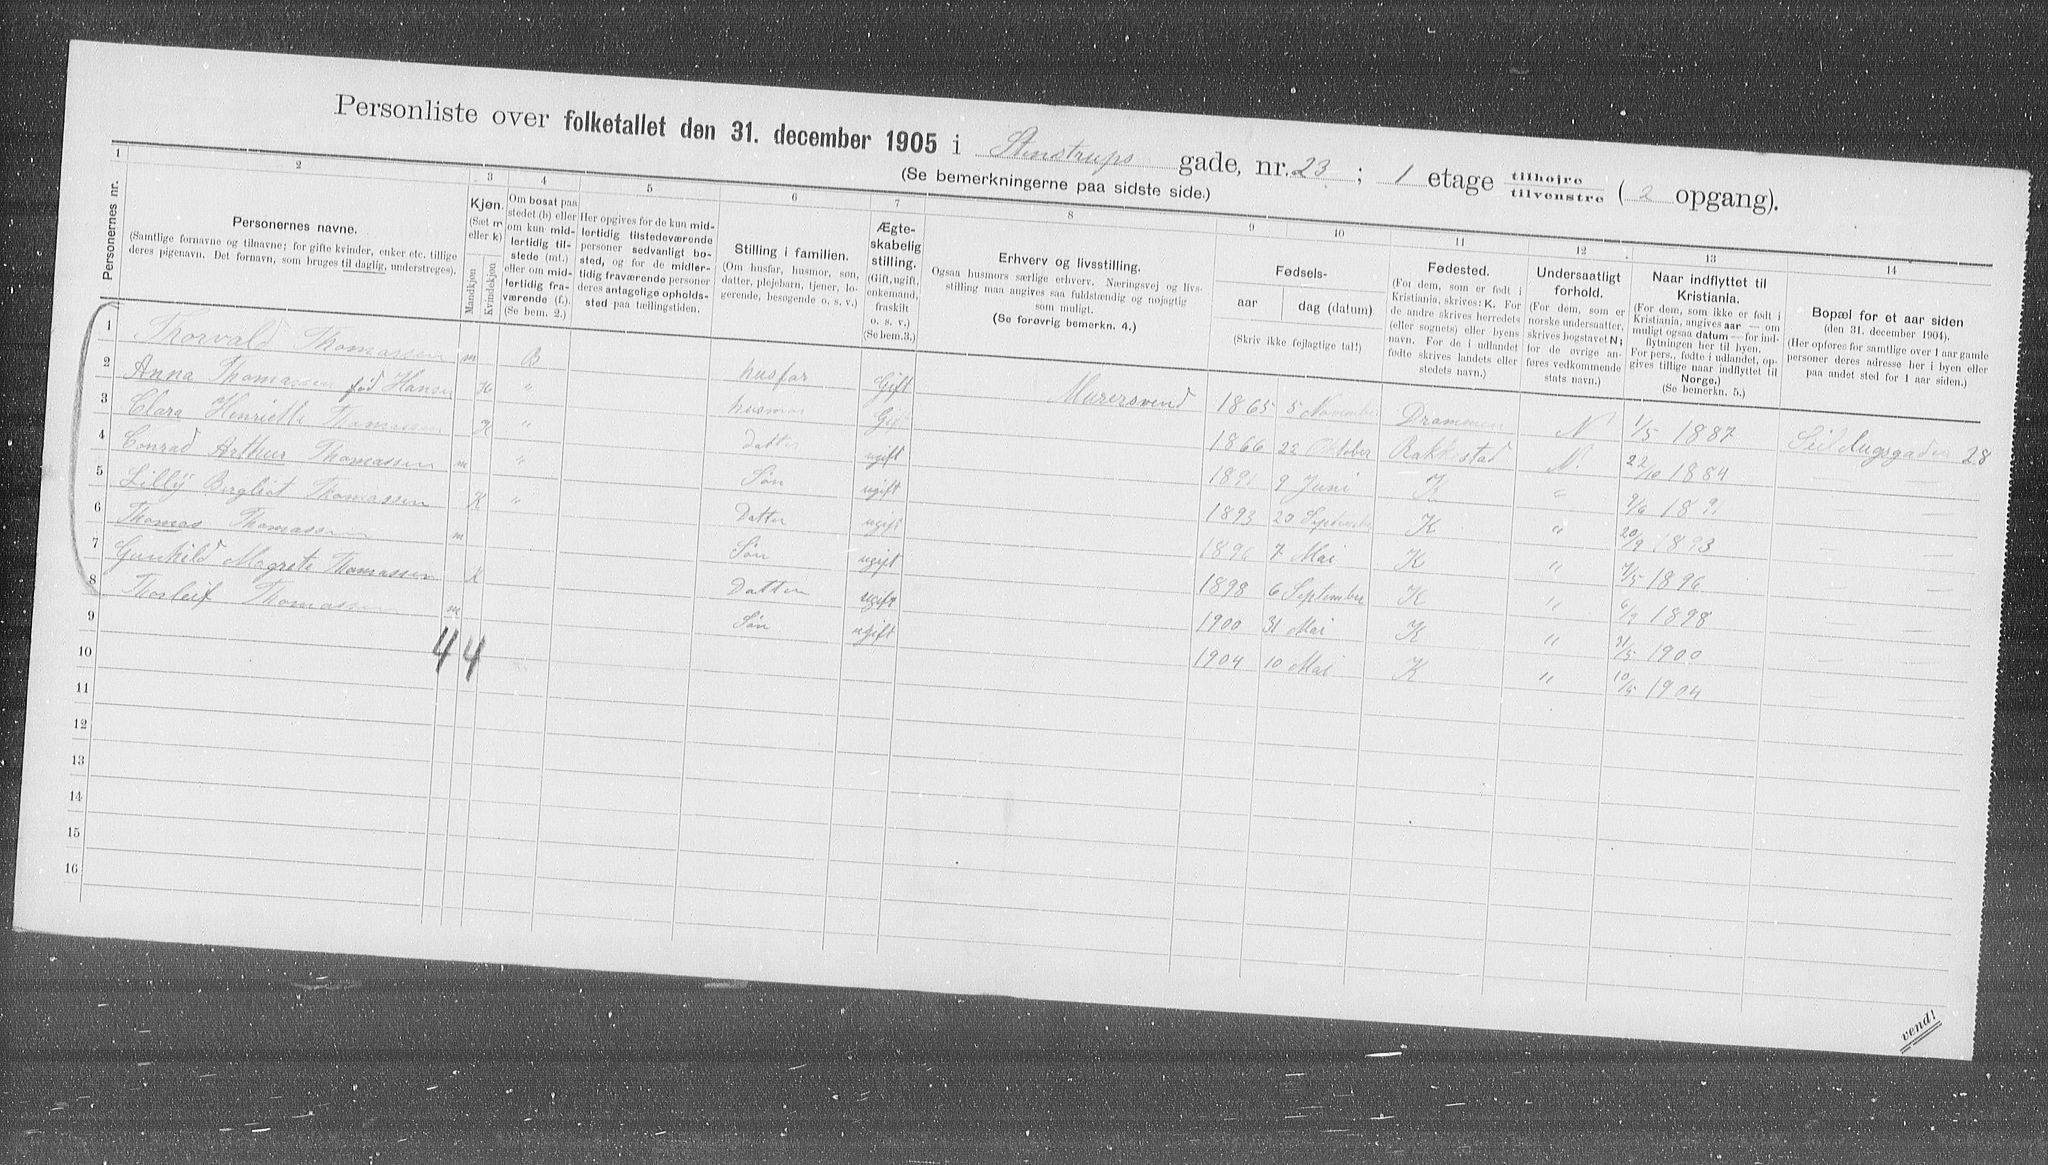 Personliste over folketallet den 31. december 1905 i Stenstrups gade, nr. 23 ; 1 etage tilhøire / tilvenstre ( 2 opgang).
(Se bemerkningerne paa sidste side.)
1 2 3 4 5 6 7 8 9 10 11 12 13 14
Personernes nr.
Personernes navne.
(Samtlige fornavne og tilnavne; for gifte kvinder, enker etc. tillige
deres pigenavn. Det fornavn, som bruges til daglig, understreges).
Kjøn.
(Sæt m
eller k)
Mandkjøn
Kvindekjøn
Om bosat paa
stedet (b) eller
om kun mid-
lertidig til-
stede (mt.)
eller om mid-
lertidig fra-
værende (f.).
(Se bem. 2.)
Her opgives for de kun mid-
lertidig tilstedeværende
personer sedvanligt bo-
sted, og for de midler-
tidig fraværende personer
deres antagelige opholds-
sted paa tællingstiden.
Stilling i familien.
(Om husfar, husmor, søn,
datter, plejebarn, tjener, lo-
gerende, besøgende o. s. v.)
Ægte-
skabelig
stilling.
(Gift, ugift,
enkemand,
fraskilt
o. s. v.)
(Se bem.3.)
Erhverv og livsstilling.
Ogsaa husmors særlige erhverv. Næringsvej og livs-
stilling maa angives saa fuldstændig og nøjagtig
som muligt.
(Se forøvrig bemerkn. 4.)
Fødsels-
aar
dag (datum)
(Skriv ikke fejlagtige tal!)
Fødested.
(For dem, som er født i
Kristiania, skrives: K. For
de andre skrives herredets
(eller sognets) eller byens
navn. For de i udlandet
fødte skrives landets eller
stedets navn.)
Undersaatligt
forhold.
(For dem, som er
norske undersaatter,
skrives bogstavet N;
for de øvrige an-
føres vedkommende
stats navn.)
Naar indflyttet til
Kristiania.
(For dem, som ikke er født i
Kristiania, angives aar — om
muligt ogsaa datum — for ind-
flytningen her til byen.
For pers., fødte i udlandet, op-
gives tillige naar indflyttet til
Norge.)
(Se bemerkn. 5.)
Bopæl for et aar siden
(den 31. december 1904).
(Her opføres for samtlige over 1 aar gamle
personer deres adresse her i byen eller
paa andet sted for 1 aar siden.)
1 Thorvald Thomassen m B husfar Gift Murersvend 1865 5 November Drammen N 1/5 1887 28
2 Anna Thomassen fød Hansen K " husmor Gift 1866 22 Oktober Rakkestad N. 22/10 1884 — —
3 Clara Henriette Thomassen K " Datter ugift 1891 9 Juni K " 9/6 1891 — —
4 Conrad Arthur Thomassen m " Søn ugift 1893 20 September K " 20/9 1893 — —
5 Lilly Bergliot Thomassen K " Datter ugift 1896 7 Mai K " 7/5 1896 — —
6 Thomas Thomassen m Søn ugift 1898 6 September K " 6/9 1898 — —
7 Gunhild Magrete Thomassen K Datter ugift 1900 31 Mai K " 31/5 1900 — —
8 Thorleif Thomassen m Søn ugift 1904 10 Mai K " 10/5 1904 — —
9
4 4
10
11
12
13
14
15
16
vend!